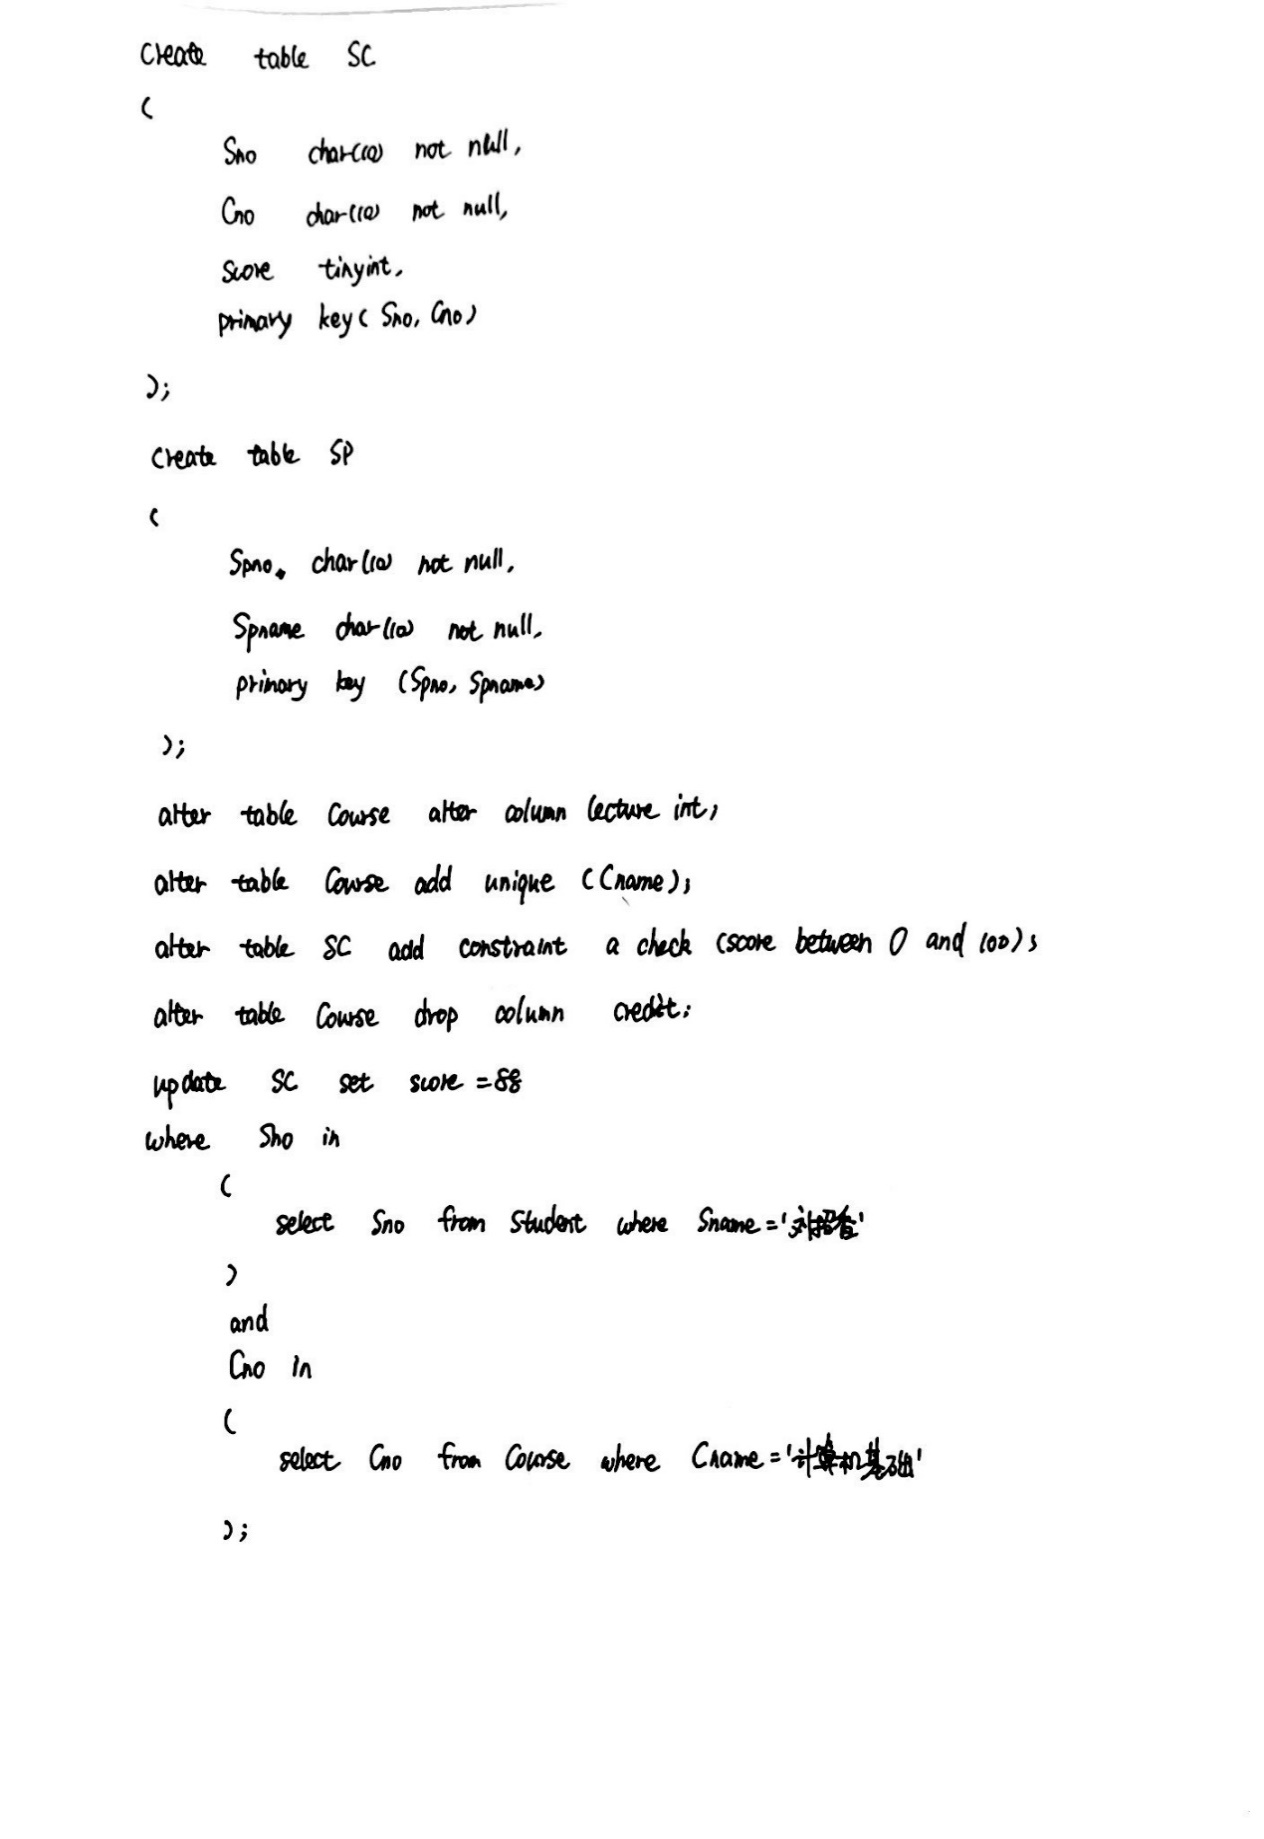 Create table SC
(
Sno char(10) not null,
Cno char(10) not null,
Score tinyint,
primary key( Sno, Cno)
);
Create table SP
(
Spno. char(10) not null,
Spname char(10) not null,
primary key (Spno, Spname)
);
alter table Course alter column lecture int;
alter table Course add unique (Cname);
alter table SC add constraint a check (score between 0 and 100);
alter table Course drop column credit;
update SC set score =88
where Sno in
(
select Sno from Student where Sname='刘招香'
)
and
Cno in
(
select Cno from Course where Cname='计算机基础'
);